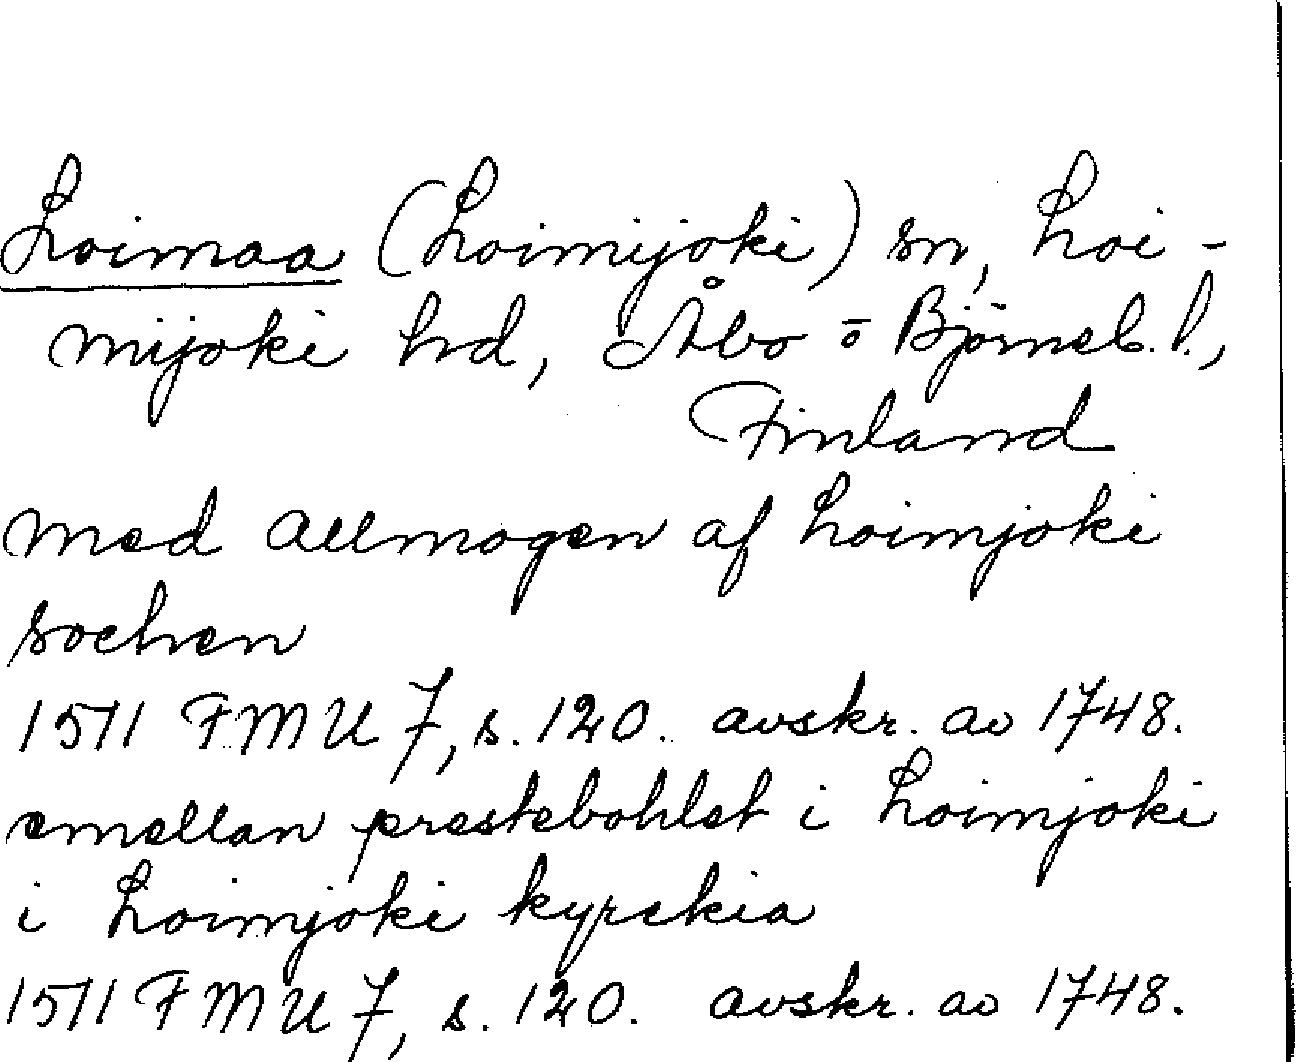 Loimaa (Loimijoki) sn, Loi-
mijoki hd, Åbo o Björneb. l.,
Finland
med allmogen af Loimjoki
sochen
1511 FMU 7, s. 120. avskr. av 1748.
emellan prestebohlet i Loimjoki
i Loimjoki kyrckia
1511 FMU 7, s. 120. avskr. av 1748.